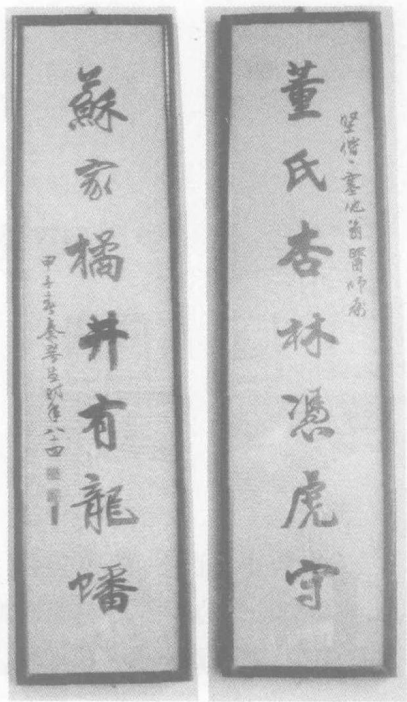 董氏杏林憑虎守
醫師屬
蘇家橘井有龍蟠
甲子春秦學年八十四